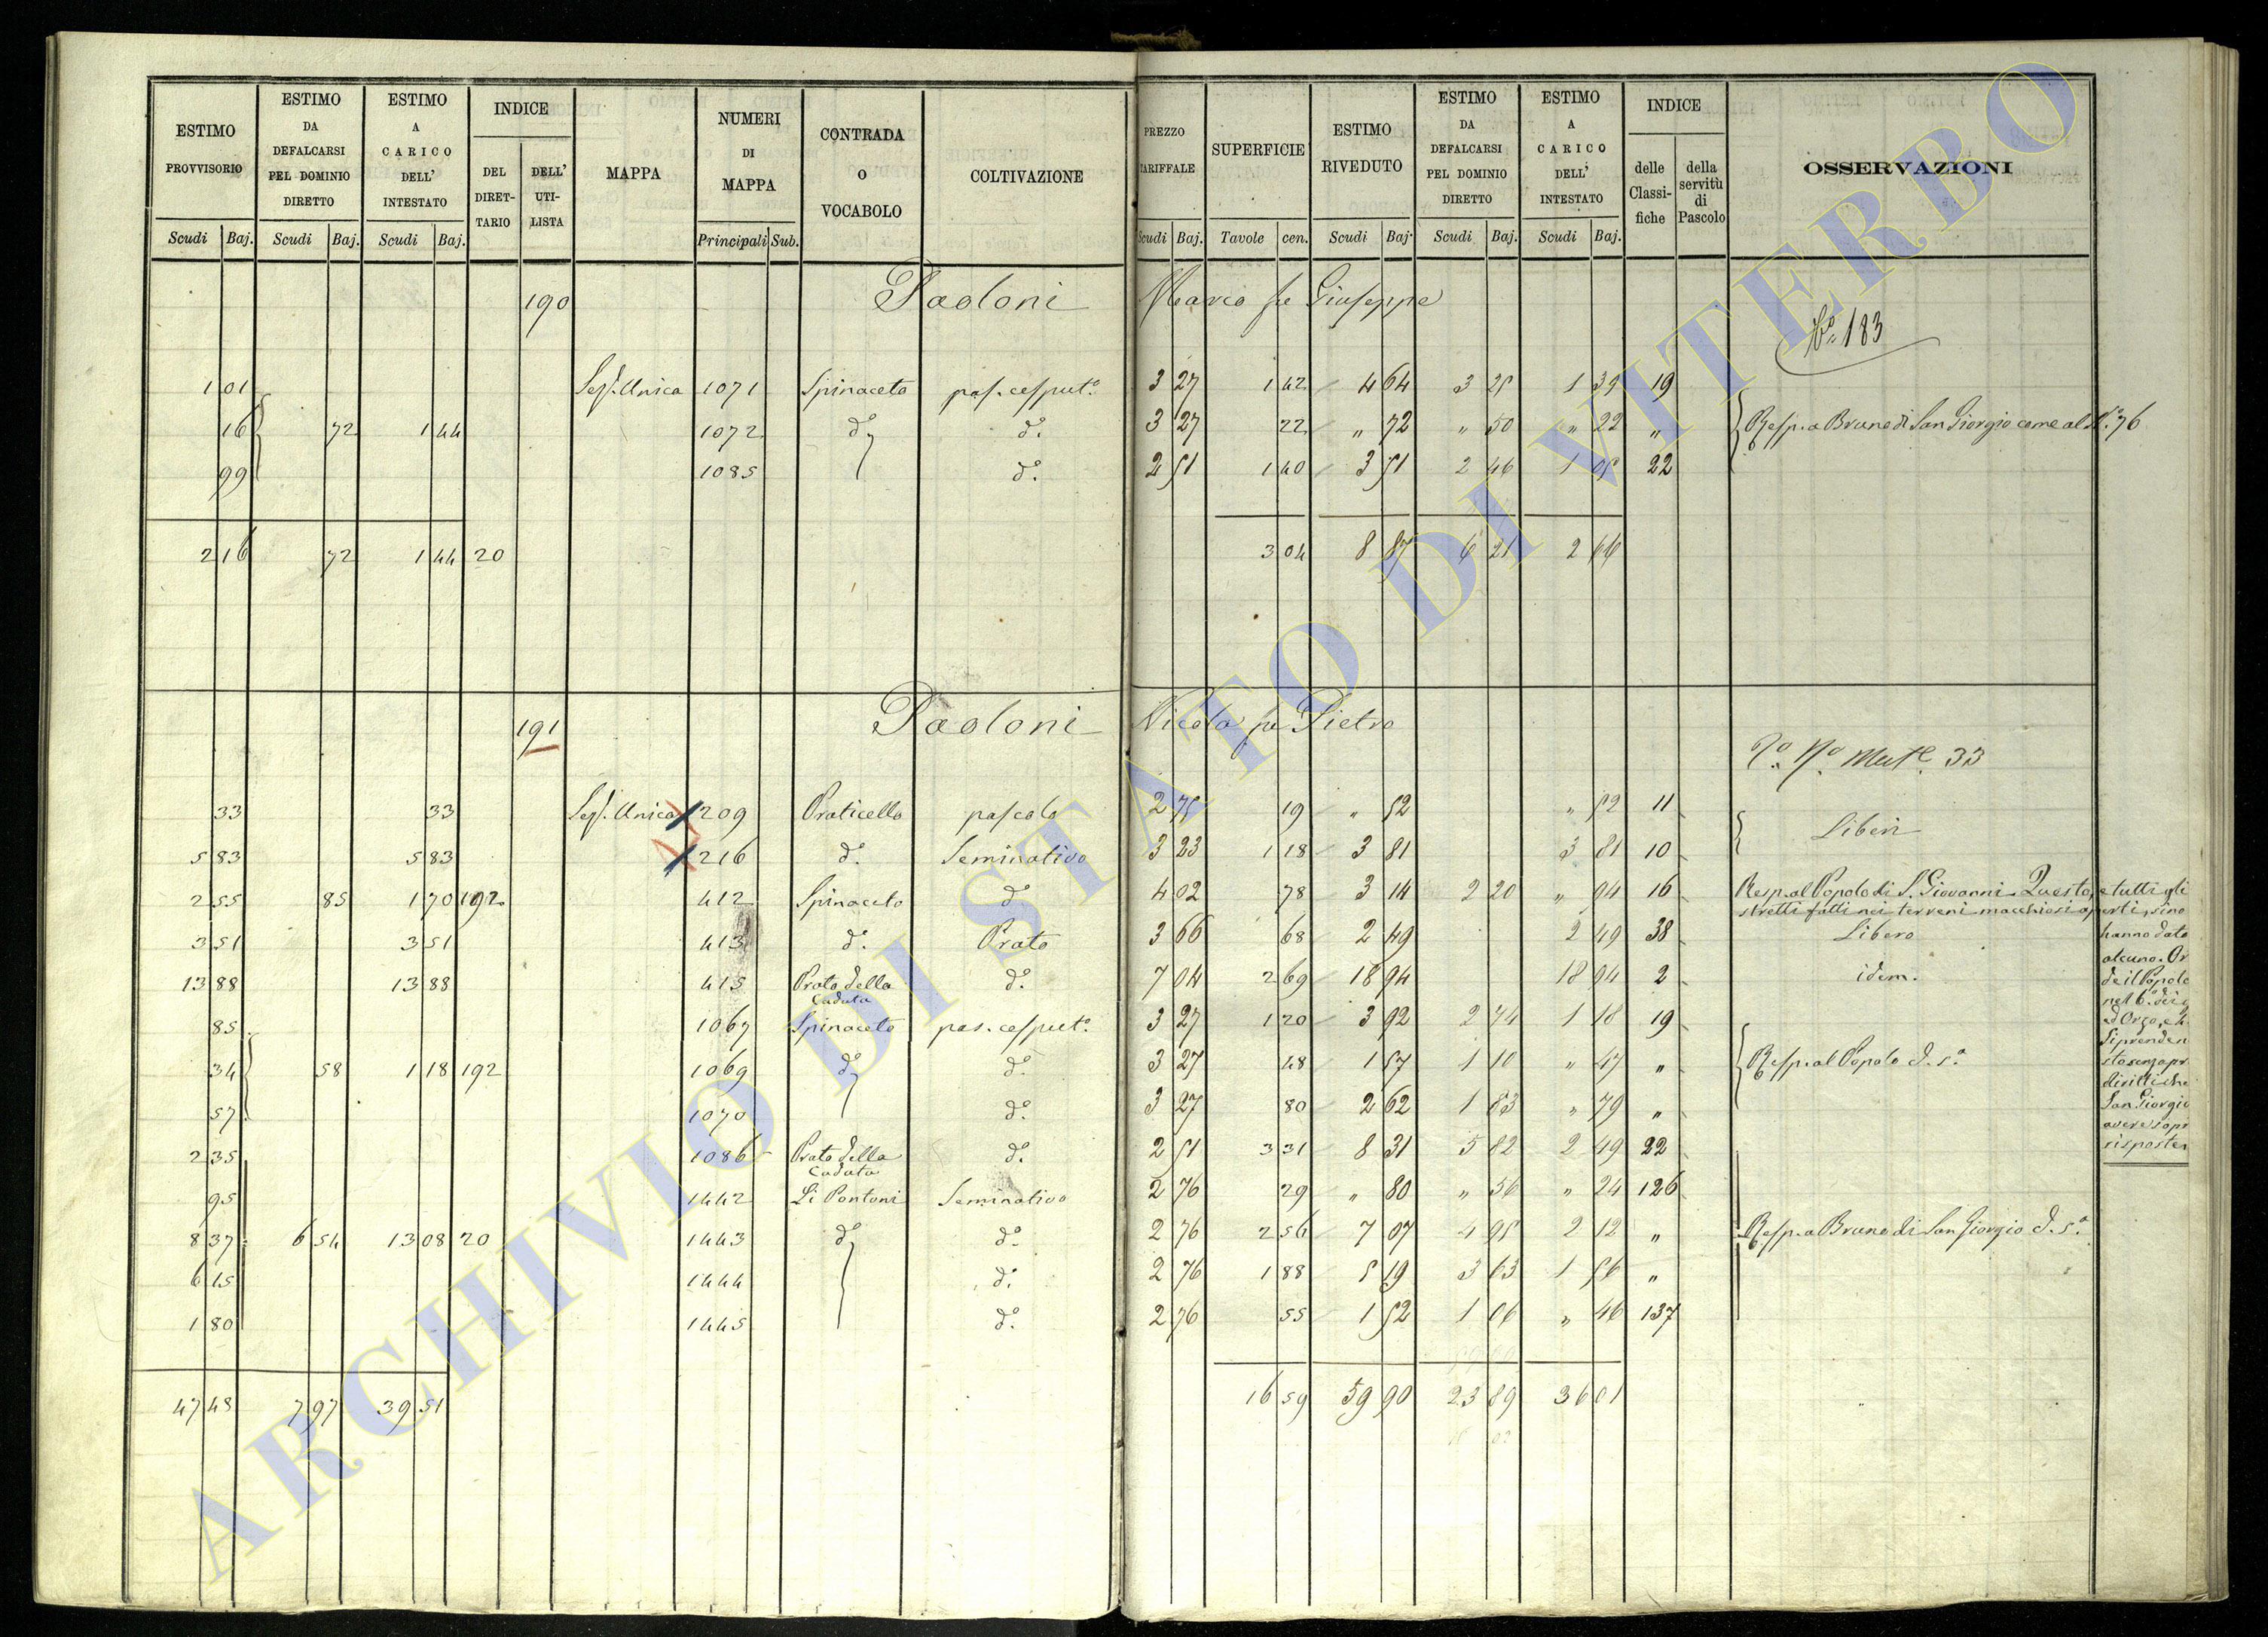 ESTIMO PROVVISORIO | ESTIMO DA DEFALCARSI PEL DOMINIO DIRETTO | ESTIMO A CARICO DELL' INTESTATO | INDICE DEL DIRETTARIO | DELL' UTILISTA | MAPPA | NUMERI DI MAPPA | CONTRADA O VOCABOLO | COLTIVAZIONE | PREZZO TARIFFALE | SUPERFICIE | ESTIMO RIVEDUTO | ESTIMO DA DEFALCARSI PEL DOMINIO DIRETTO | ESTIMO A CARICO DELL' INTESTATO | INDICE delle Classifiche | della servitù di Pascolo | OSSERVAZIONI
Scudi Baj. | Scudi Baj. | Scudi Baj. | Principali Sub. | Scudi Baj. | Tavole cen. | Scudi Baj. | Scudi Baj. | Scudi Baj.
190 Paoloni Marco fu Giuseppe
183
1 01 Sez. Unica 1071 Spinaceto pas. cesput.º 3 27 1 42 4 64 3 25 1 39 19
16 72 1 44 1072 dº dº. 3 27 22 " 72 " 50 " 22 " Resp. a Bruno di San Giorgio come al Nº. 76
99 1085 dº. 2 51 1 40 3 51 2 46 1 05 22
2 16 72 1 44 20 3 04 8 87 6 21 2 66
191 Paoloni Nicola fu Pietro
33
33 33 Sez. Unica 209 Praticello pascolo 2 75 19 " 52 " 52 11 Liberi
5 83 5 83 216 dº. Seminativo 3 23 1 18 3 81 3 81 10
2 55 85 1 70 192 412 Spinaceto dº 4 02 78 3 14 2 20 " 94 16 Resp. al Popolo di S. Giovanni. Questo, e tutti gli
stretti fatti nei terreni macchiosi aperti, sino
3 51 3 51 413 dº. Prato 3 66 68 2 49 2 49 38 Libero hanno dato
alcuno. Or
13 88 13 88 415 Prato della Caduta dº. 7 04 2 69 18 94 18 94 2 idem. de il Popolo
85 1067 Spinaceto pas. cesput.º 3 27 1 20 3 92 2 74 1 18 19
34 58 1 18 192 1069 dº dº. 3 27 48 1 57 1 10 " 47 " Resp. al Popolo d. s.ª
57 1070 dº. 3 27 80 2 62 1 83 " 79 " San Giorgio
2 35 1086 Prato della Caduta dº. 2 51 3 31 8 31 5 82 2 49 22
95 1442 Li Pontoni Seminativo 2 76 29 " 80 " 56 " 24 126
8 37 6 54 13 08 20 1443 dº dº. 2 76 2 56 7 07 4 95 2 12 " Resp. a Bruno di San Giorgio d. s.ª
6 15 1444 dº. 2 76 1 88 5 19 3 63 1 56 "
1 80 1445 dº. 2 76 55 1 52 1 06 " 46 137
47 48 7 97 39 51 16 59 59 90 23 89 36 01
ARCHIVIO DI STATO DI VITERBO